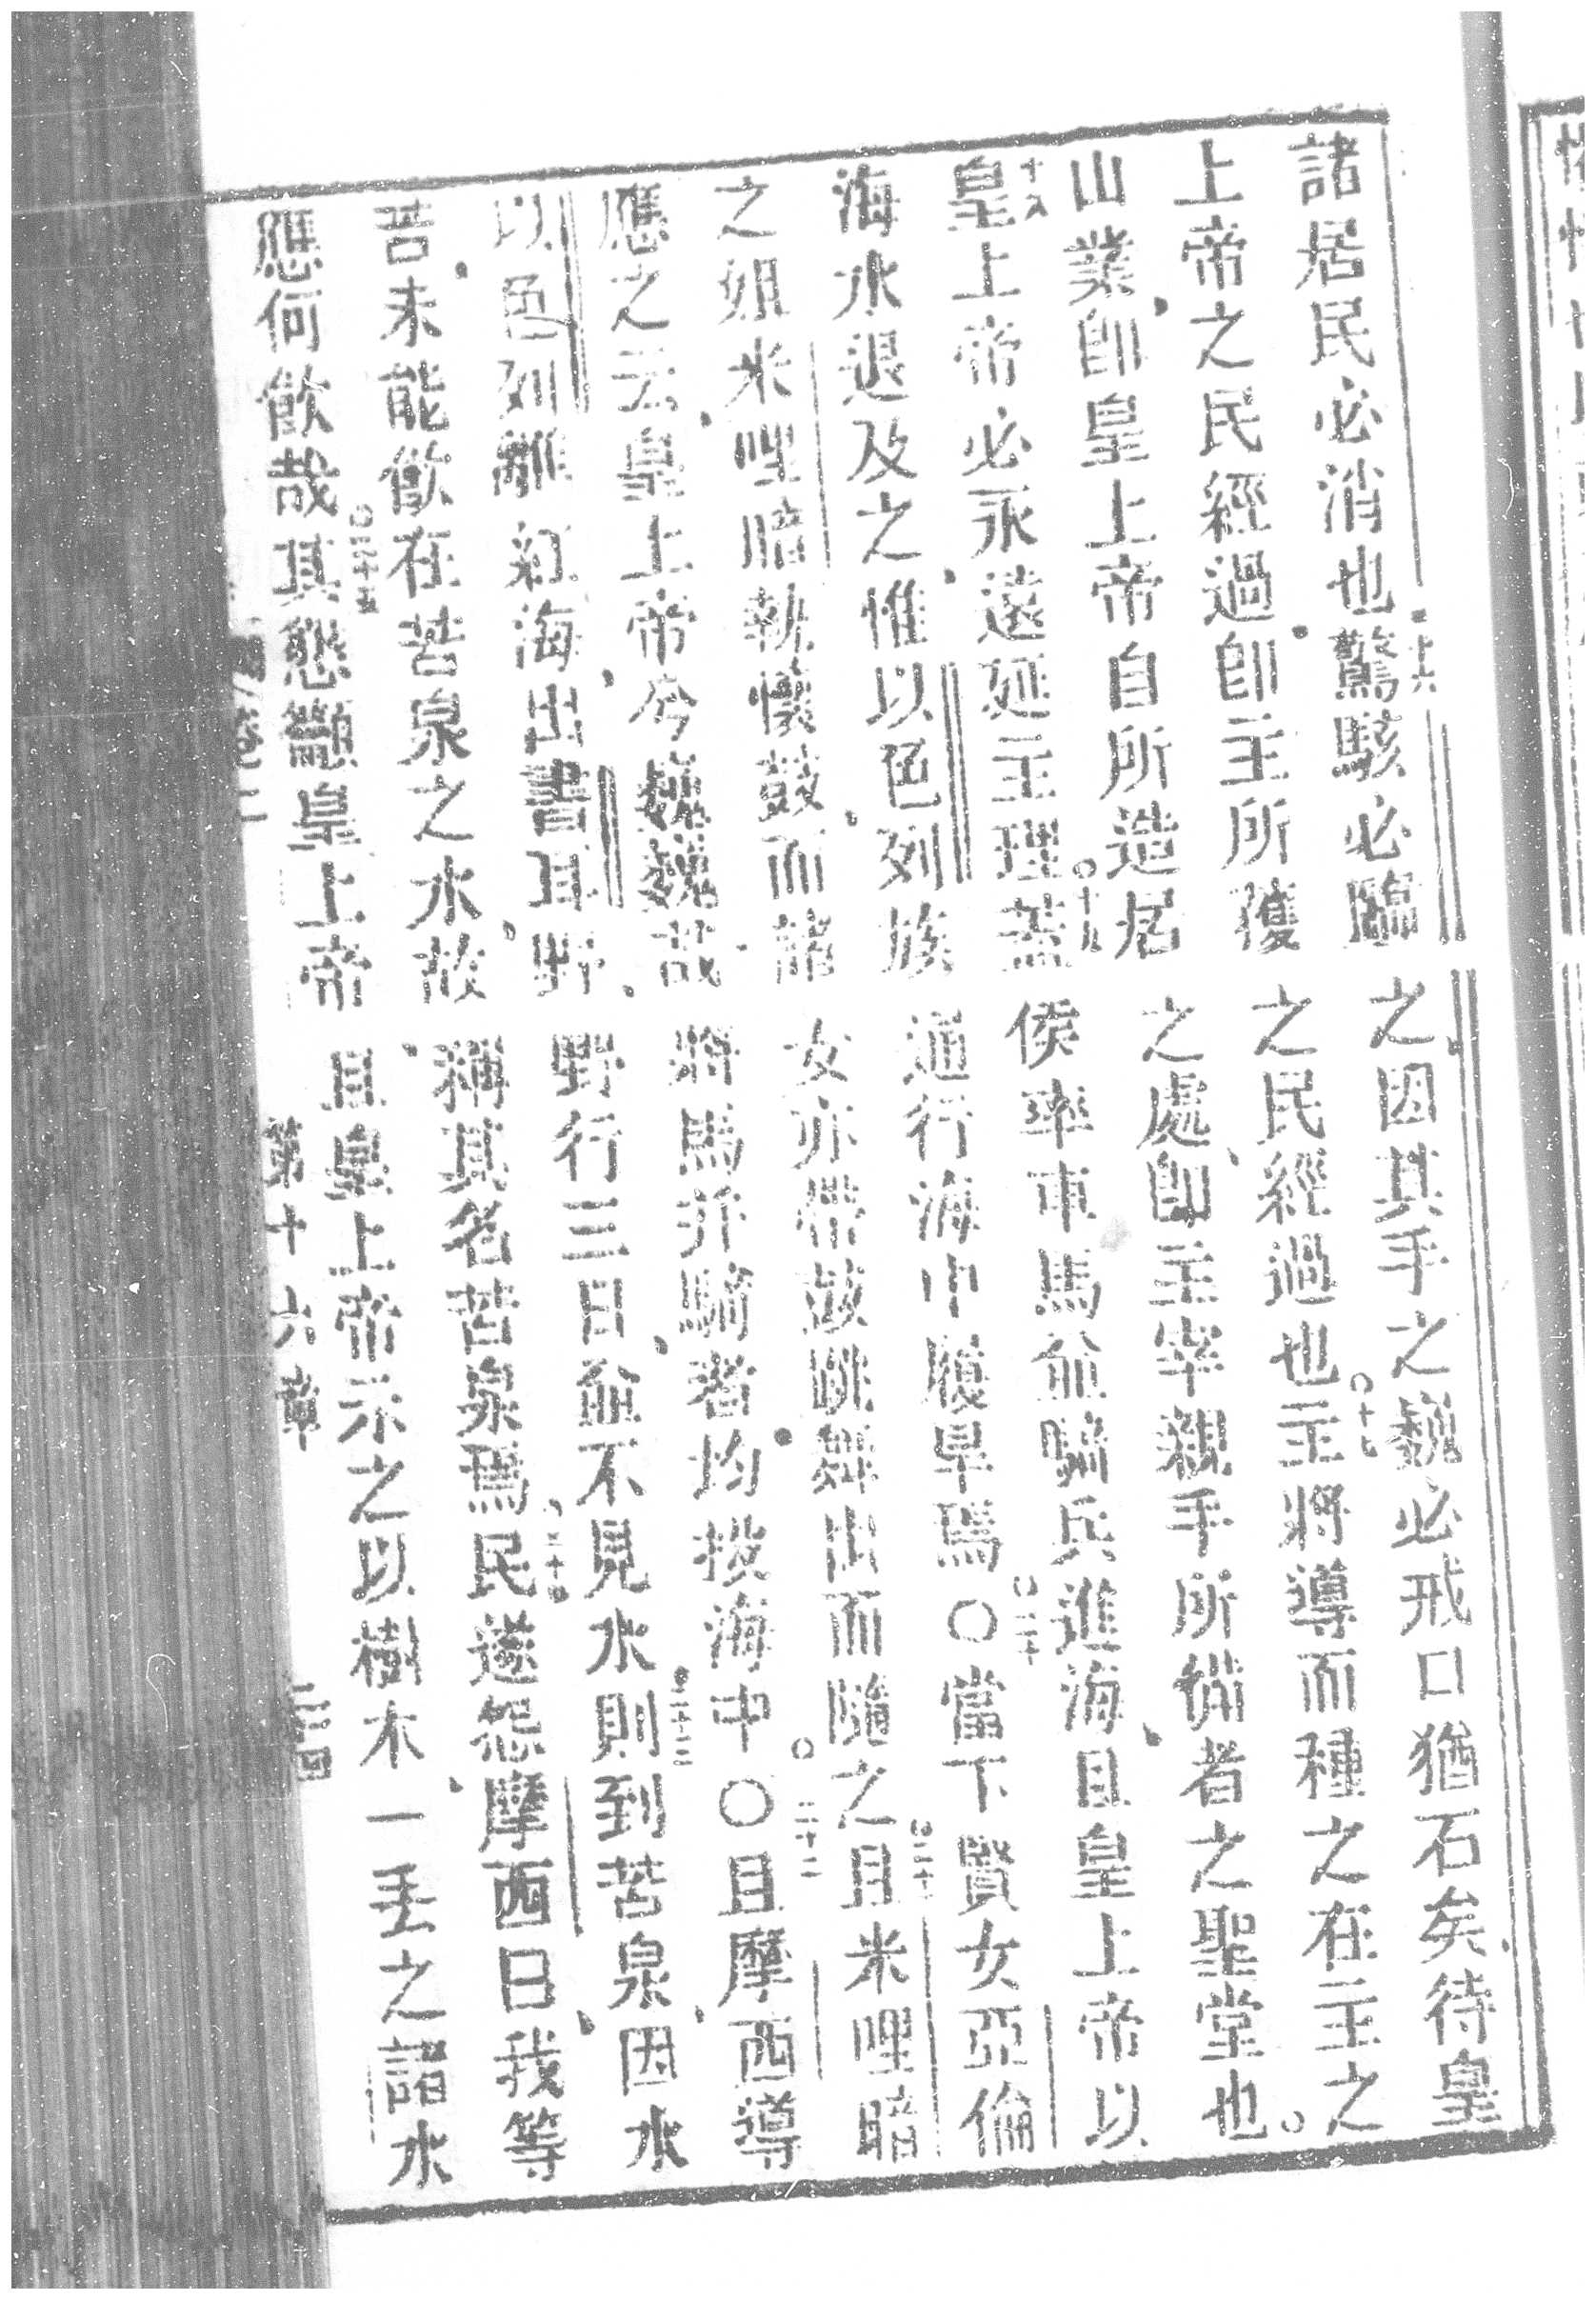 諸居民必消也十六驚駭必臨之因其手之巍必戒口猶石矣待皇
上帝之民經過即主所獲之民經過也十七主將導而種之在主之
山業即皇上帝自所造居之處即主宰親手所備者之聖堂也
十八皇上帝必永遠延主理十九蓋侯率車馬並騎兵進海且皇上帝以
海水退及之惟以色列族通行海中履旱焉〇二十當下賢女亞倫
之姐米哩暗執懷鼓而諸女亦帶鼓跳舞出而隨之二十一且米哩暗
應之云皇上帝今巍巍哉將馬并騎者均投海中〇二十二且摩西導
以色列離紅海出書耳野野行三日並不見水二十三則到苦泉因水
苦未能飲在苦泉之水故稱其名苦泉焉二十四民遂怨摩西曰我等
應何飲哉二十五其懇籲皇上帝且皇上帝示之以樹木一丟之諸水
第十六章